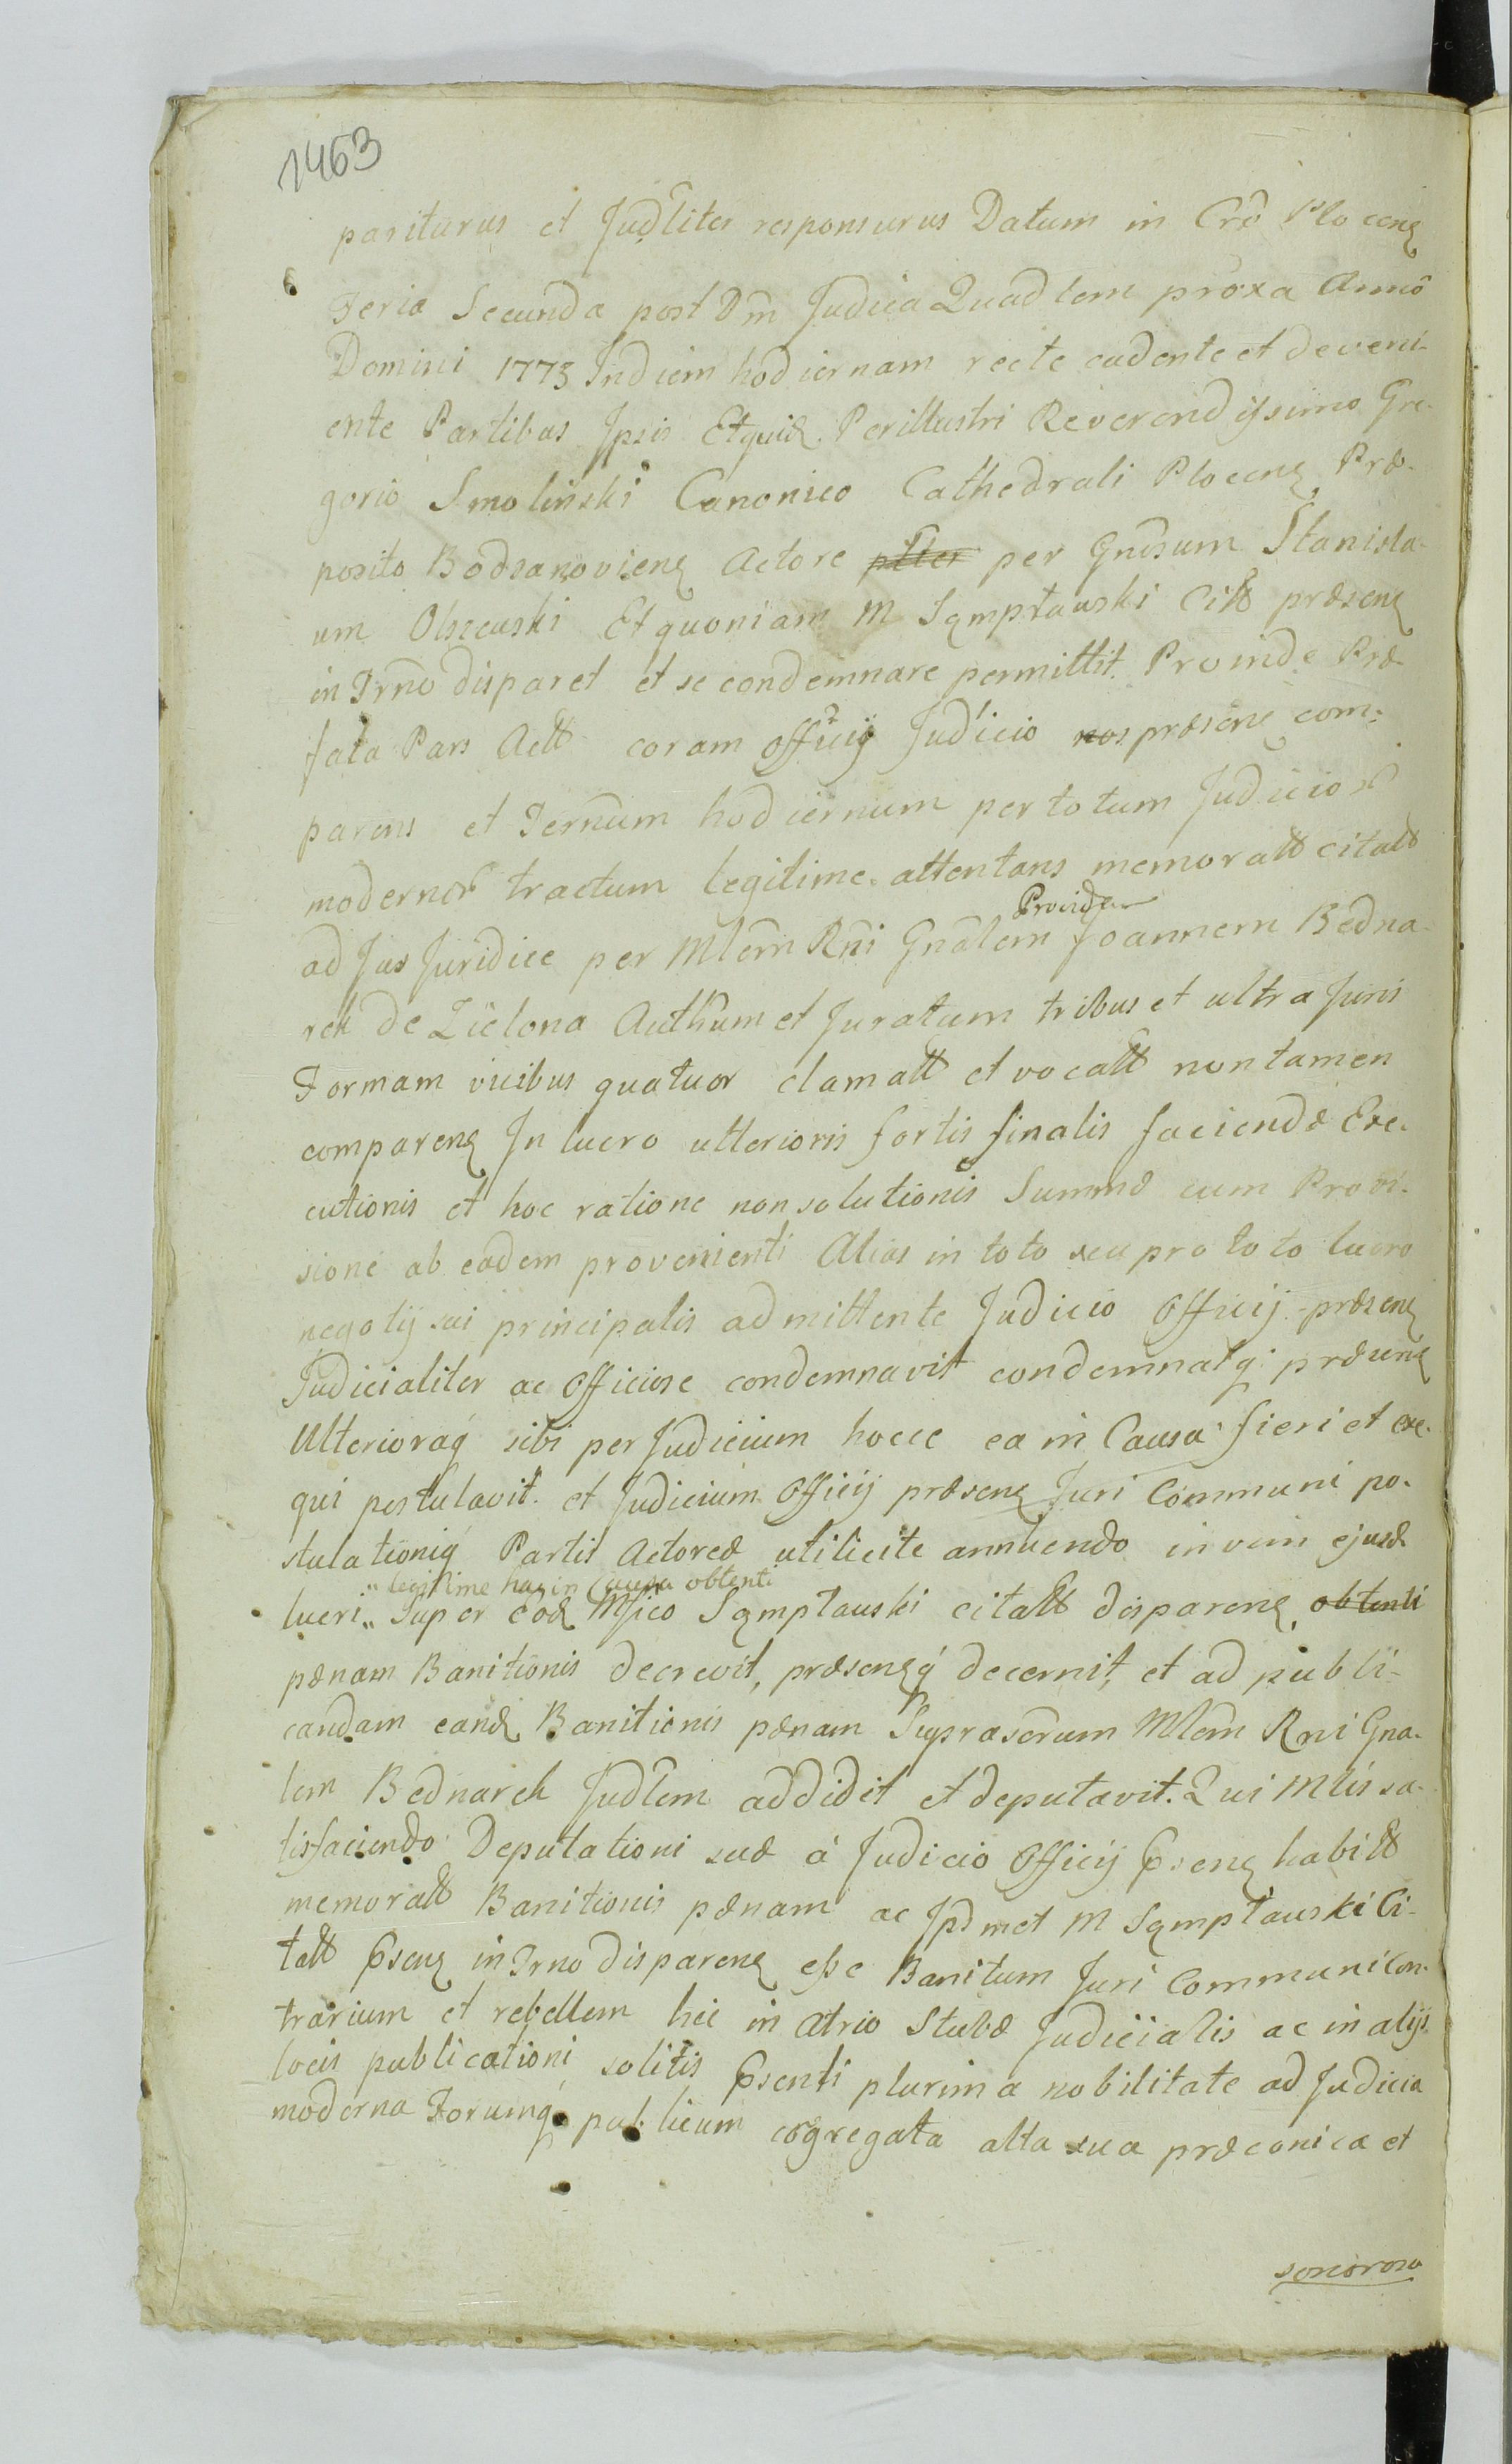 1463
pariturus et Judliter responsurus Datum in Cro Plocenę
Feria Secunda post Dm Judica Quadlem proxa Anno
Domini 1773 In diem hodiernam recte cadente et deveni-
ente Partibus Ipsis Etquid. Perillustri Reverendissimo Gre-
gorio Smoliński Canonico Cathedrali Plocenę Præ-
posito Bodzanovienę Actore per Gnosum Stanisla-
um Olszewski Et quoniam M Sęmpławski Citt præsenę
in Trno disparet et se condemnare permittit. Proinde Præ-
fata Pars Actt coram Officij Judicio nos præsenę com-
parens et Ternum hodiernum per totum Judicior
modernor tractum legitime attentans memoratt citatt
Provid
ad Jus Juridice per Mlem Rni Gnalem Joannem Bedna-
rek de Zielona Authum et Juratum tribus et ultra Juris
Formam vicibus quatuor clamatt et vocatt non tamen
comparenę In lucro ulterioris fortis finalis faciendæ Exe-
cutionis et hoc ratione non solutionis Summæ cum Provi-
sione ab eadem provenienti Alias in toto seu pro toto lucro
negotij sui principalis admittente Judicio Officij præsenę
Judicialiter ac Officiose condemnavit condemnatq præsenę
Ulterioraq sibi per Judicium hocce ea in Causa fieri et exe-
qui postulavit. et Judicium Officij præsenę Juri Communi po-
stulationiq Partis Actoreæ utilicite annuendo in vim ejusd
" legitime hac in Causa obtenti
lucri " Super Eod Mfico Sęmpławski citatt disparenę obtenti
pænam Banitionis decrevit, præsenęq decernit, et ad publi-
candam eand Banitionis pænam Suprascrum Mlem Rni Gna-
lem Bednarek Judlem addidit et deputavit. Qui Mlis sa-
tisfaciendo Deputationi suæ à Judicio Officij Psenę habitt
memoratt Banitionis pænam ac Ipsmet M Sęmpławski Ci-
tatt Psenę in Trno disparenę esse Banitum Juri Communi con-
trarium et rebellem hic in Atrio Stubæ Judicialis ac in alijs
locis publicationi solitis Psenti plurima nobilitate ad Judicia
moderna Forumq publicum cogregata alta sua præconica et
sonorosa